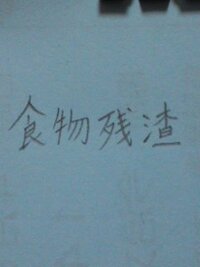 食物残渣